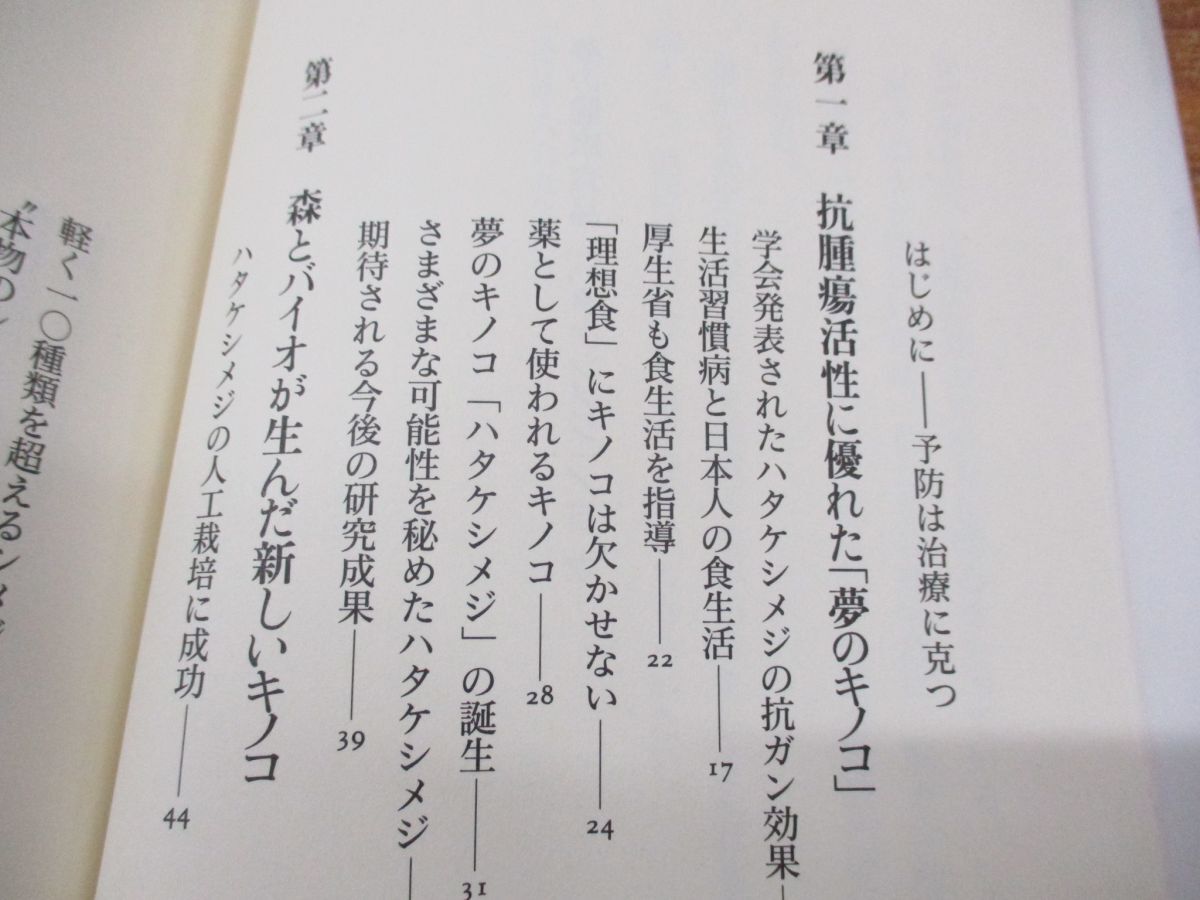 はじめに——予防は治療に克つ
第一章 抗腫瘍活性に優れた「夢のキノコ」
学会発表されたハタケシメジの抗ガン効果—
生活習慣病と日本人の食生活——17
厚生省も食生活を指導——22
「理想食」にキノコは欠かせない——24
薬として使われるキノコ——28
夢のキノコ「ハタケシメジ」の誕生——31
さまざまな可能性を秘めたハタケシメジ—
期待される今後の研究成果——39
第二章 森とバイオが生んだ新しいキノコ
ハタケシメジの人工栽培に成功——44
軽く一〇種類を超えるシメジ
〝本物の